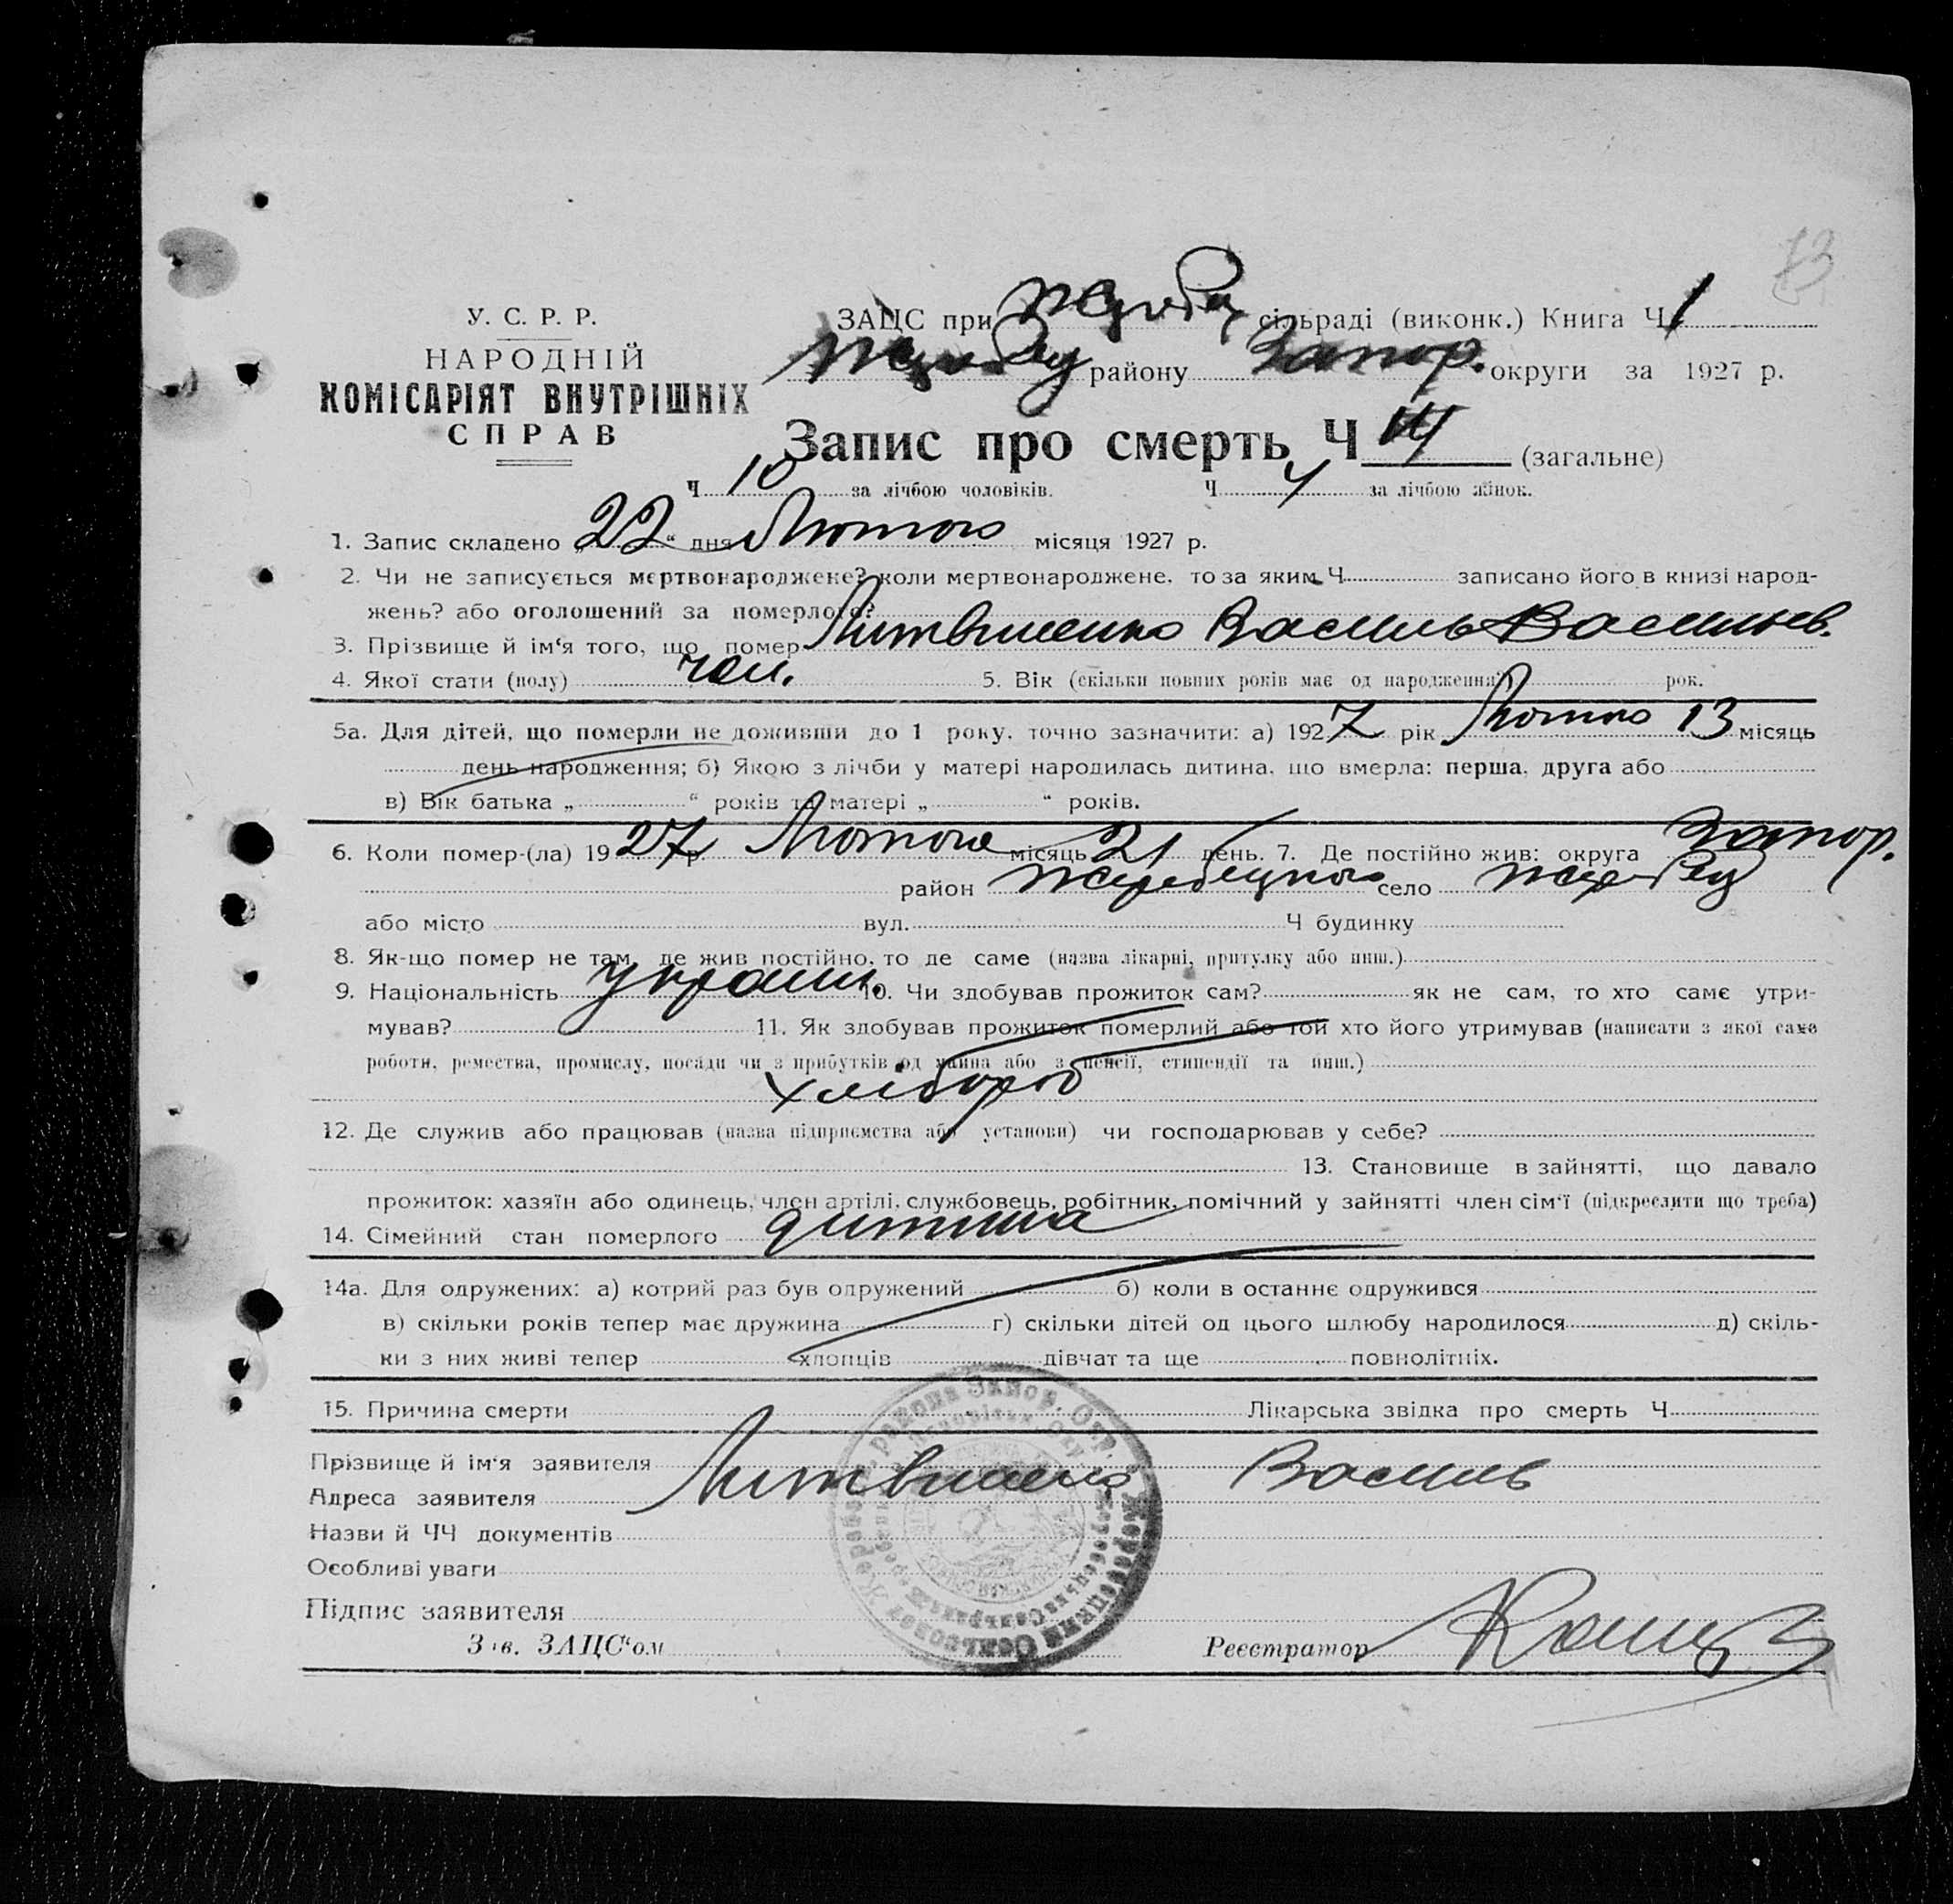 73
У. С. Р. Р.
НАРОДНІЙ
КОМІСАРІЯТ ВНУТРІШНІХ
СПРАВ
ЗАЦС при Жереб. сільраді (виконк.) Книга Ч. 1
району Запор. округи за 1927 р.
Запис про смерть Ч. (загальне)
Ч. 10 за лічбою чоловіків. Ч. 4 за лічбою жінок.
1. Запис складено „22“ дня Лютого місяця 1927 р.
2. Чи не записується мертвонароджене? коли мертвонароджене, то за яким Ч. записано його в книзі народ-
жень? або оголошений за померлого?
3. Прізвище й ім‘я того, що помер Литвиненко Василь Васильев.
4. Якої стати (полу) чол. 5. Вік (скільки повних років має од народження?) рок.
5а. Для дітей, що померли не доживши до 1 року, точно зазначити: а) 1927 рік Лютого 13 місяць
день народження; б) Якою з лічби у матері народилась дитина, що вмерла: перша, друга або
в) Вік батька „ “ років та матері „ “ років.
6. Коли помер-(ла) 1927 р. Лютого місяць 21 день. 7. Де постійно жив: округа Запор.
район Жеребецького село Жеребец
або місто вул. Ч будинку
8. Як-що помер не там, де жив постійно, то де саме (назва лікарні, притулку або инш.)
9. Національність Украин. 10. Чи здобував прожиток сам? як не сам, то хто саме утри-
мував? 11. Як здобував прожиток померлий або той хто його утримував (написати з якої саме
роботи, ремества, промислу, посади чи з прибутків од майна або з пенсії, стипендії та инш.)
хлібороб
12. Де служив або працював (назва підприємства або установи) чи господарював у себе?
13. Становище в зайнятті, що давало
прожиток: хазяїн або одинець, член артілі, службовець, робітник, помічний у зайнятті член сім‘ї (підкреслити що треба)
14. Сімейний стан померлого дитина
14а. Для одружених: а) котрий раз був одружений б) коли в останнє одружився
в) скільки років тепер має дружина г) скільки дітей од цього шлюбу народилося д) скіль-
ки з них живі тепер хлопців дівчат та ще повнолітніх.
15. Причина смерти Лікарська звідка про смерть Ч.
Прізвище й ім‘я заявителя Литвиненко Василь
Адреса заявителя
Назви й ЧЧ документів
Особливі уваги
Підпис заявителя
Зав. ЗАЦС‘ом Реєстратор